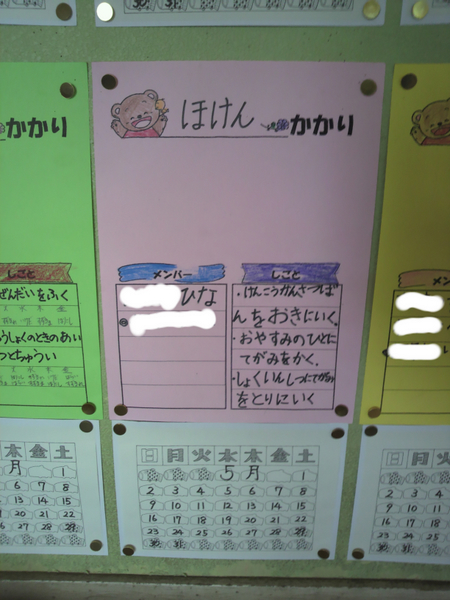 かかり
しごと
ぜんだいをふく
うしょくのときのあい
つとちゅうい
ほけん かかり
メンバー
ひな
しごと
・けんこうかんさつば
んをおきにいく。
・おやすみのひとに
てがみをかく。
・しょくいんしつにてがみ
をとりにいく
メン
木 金 土
月 1
6 7 8
13 14 15
20 21 22
27 28 29
日 月 火 水 木 金 土
5月 1
2 3 4 5 6 7 8
9 10 11 12 13 14 15
16 17 18 19 20 21 22
23 24 25 26 27 28 29
30 31
日 月
2 3 4
9 10 11
16 17 18
23 24 25
30 31